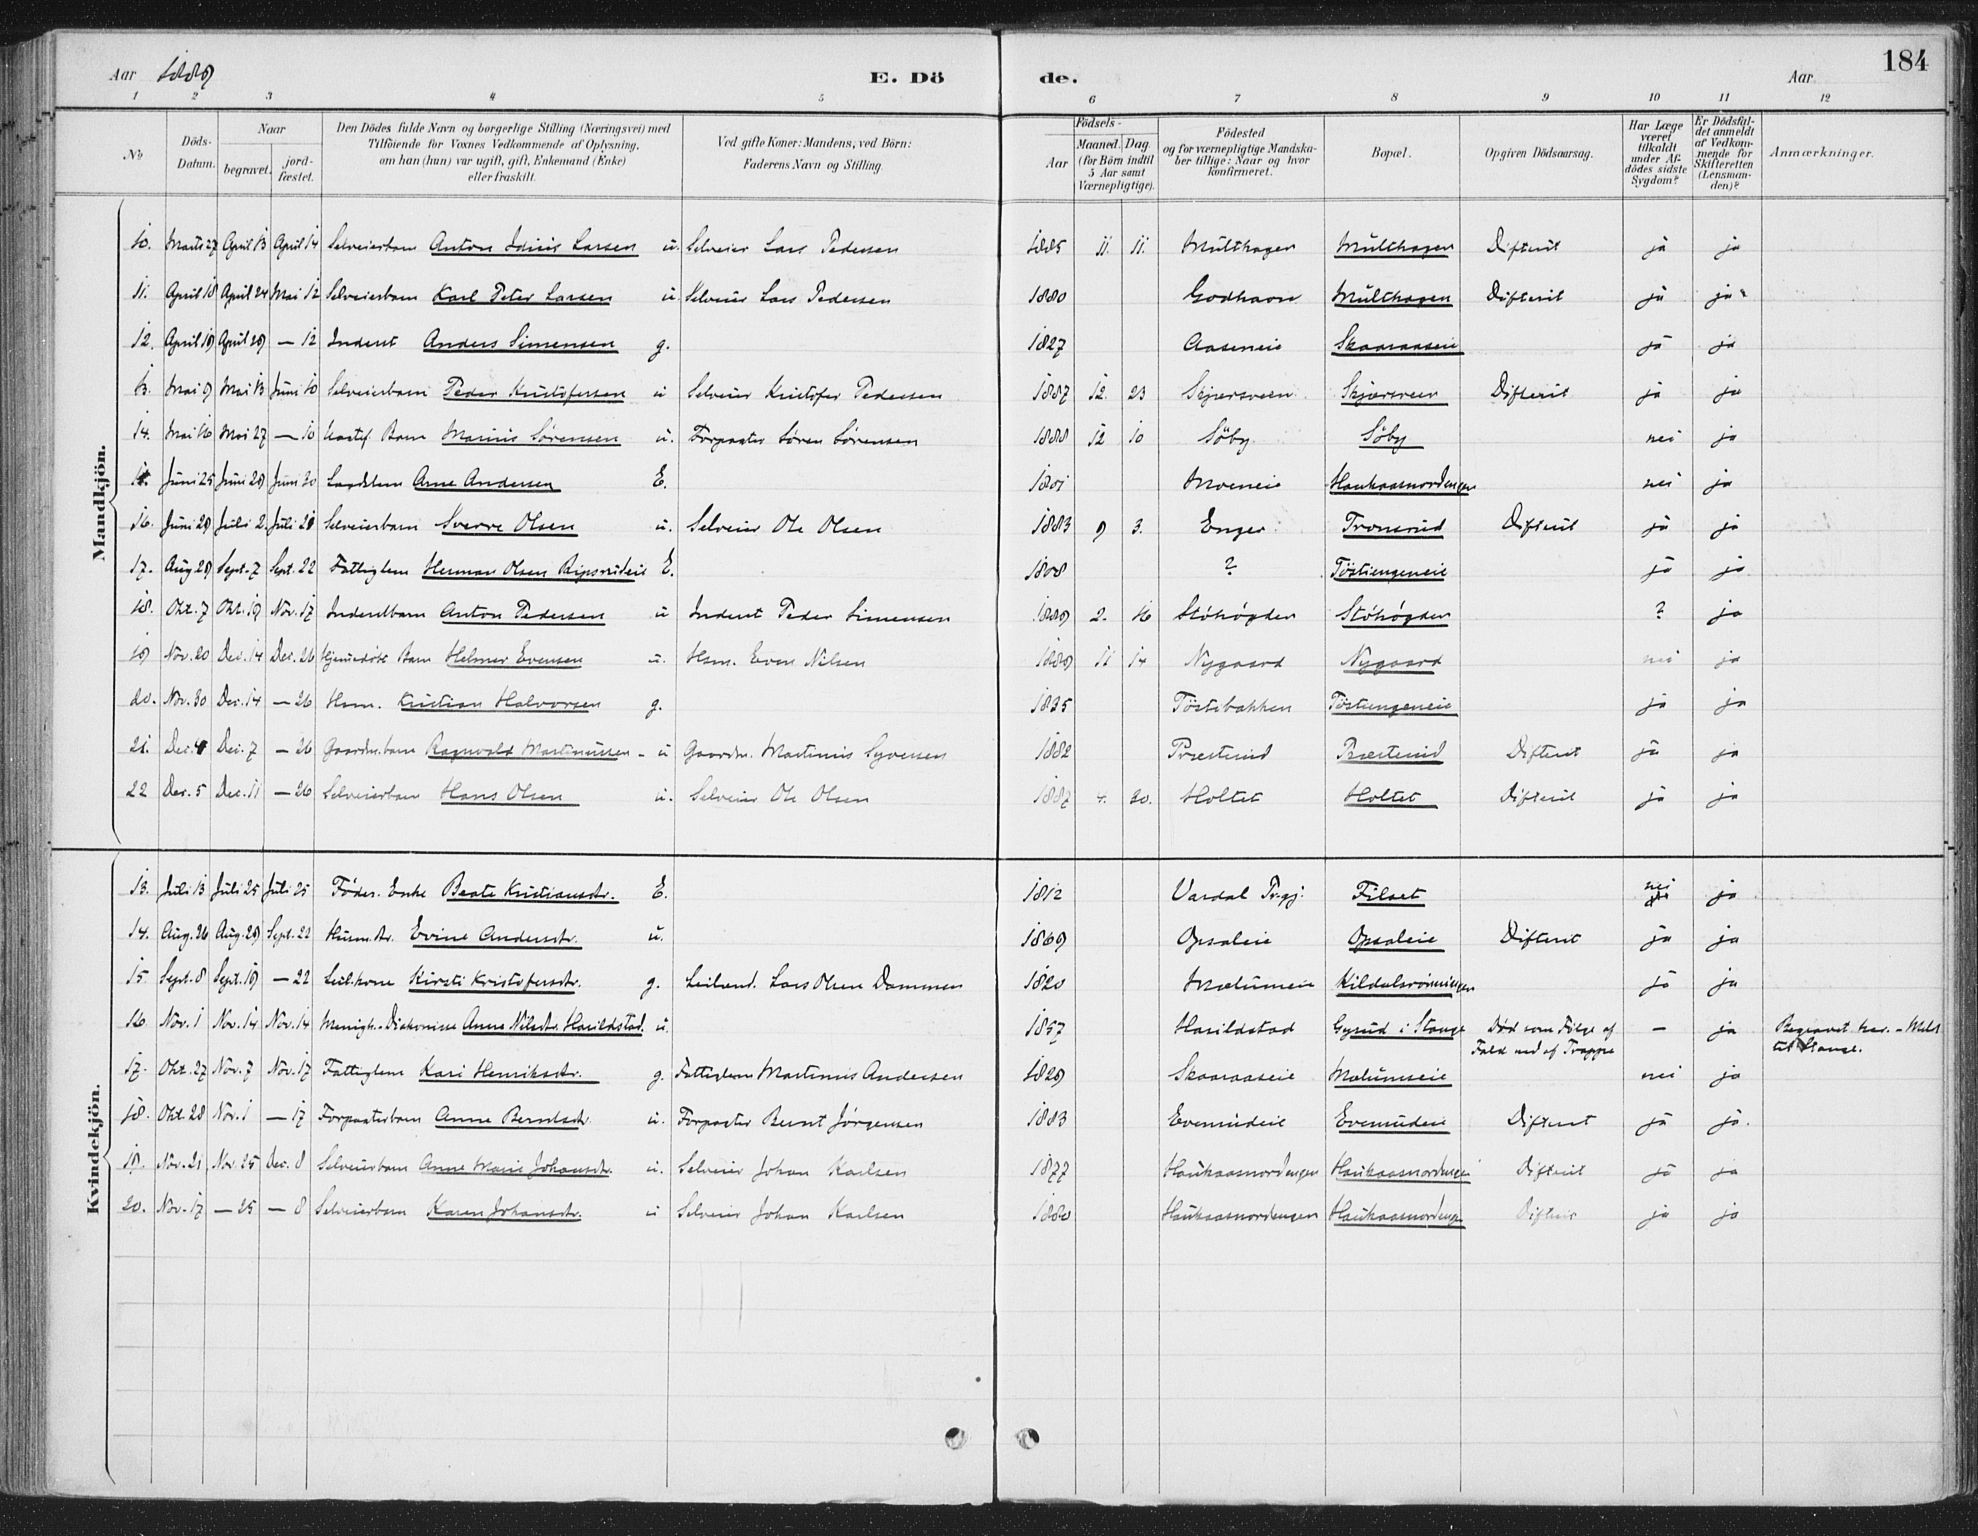 Aar 1889 E. Dö de. Aar 184
1 2 3 4 5 6 7 8 9 10 11 12
No Döds-Datum. Naar begravet. jord-fæstet. Den Dödes fulde Navn og borgerlige Stilling (Næringsvei) med Tilföiende for Voxnes Vedkommende af Oplysning, om han (hun) var ugift, gift, Enkemand (Enke) eller fraskilt. Ved gifte Koner: Mandens, ved Börn: Faderens Navn og Stilling. Födsels- Aar Maaned. Dag. (for Börn indtil 5 Aar samt Værnepligtige). Födested og for værnepligtige Mandskaber tillige: Naar og hvor konfirmeret. Bopæl. Opgiven Dödsaarsag. Har Læge været tilkaldt under Afdödes sidste Sygdom? Er Dödsfaldet anmeldt af Vedkommende for Skifteretten (Lensmanden)? Anmærkninger.
Mandkjön.
10. Marts 27 April 13 April 14 Selveierbarn Anton Larsen u. Selveier Lars Pedersen 1885 11. 11. Multhagen Multhagen Difterit ja ja
11. April 18 April 24 Mai 12 Selveierbarn Karl Peter Larsen u. Selveier Lars Pedersen 1880 Godhavn Multhagen Difterit ja ja
12. April 19 April 29 — 12 Inderst Anders Simensen g. 1827 Aaseneie Skaaraaseie ja ja
13. Mai 9 Mai 13 Juni 10 Selveierbarn Peder Kristofersen u Selveier Kristofer Pedersen 1887 12. 23 Skjærsveen Skjærsveen Difterit ja ja
14. Mai 16 Mai 27 — 10 Uægtef. Barn Marius Sørensen u. Forpagter Søren Sørensen 1888 12 10 Söby Söby nei ja
Juni 25 Juni 29 Juni 30 Arne Andersen E. 1801 Moeneie Haukaasnordengen nei ja
16. Juni 29 Juli 2 Juli 21 Selveierbarn Sverre Olsen u. Selveier Ole Olsen 1883 9 3. Enger Tronsrud Difterit ja ja
17. Aug. 29 Sept. 7 Sept. 22 Fattiglem Herman Olsen Ripsrudeie E. 1808 ? Töstiengeneie ja ja
18. Okt. 7 Okt. 19 Nov. 17 Inderstbarn Anton Pedersen u Inderst Peder Simensen 1889 2. 16 Stóhögden Stóhögden ? ja
19 Nov. 20 Dec. 14 Dec. 26 Hjemmedöbt Barn Helmer Evensen u. Hsm. Even Nilsen 1889 11 14 Nygaard Nygaard nei ja
20. Nov. 30 Dec. 14 — 26 Hsm. Kristian Halvorsen g. 1835 Töstibakken Töstiengeneie ja ja
21. Dec. 4 Dec. 7 — 26 Gaardm.barn Ragnvald Martinussen u Gaardm. Martinus Syversen 1882 Præsterud Præsterud Difterit ja ja
22 Dec. 5 Dec. 11 — 26 Selveierbarn Hans Olsen u. Selveier Ole Olsen 1887 4. 20. Holtet Holtet Difterit ja ja
Kvindekjön.
13. Juli 13 Juli 25 Juli 25 Föder. Enke Beate Kristiansdtr. E. 1812 Vardal Prgj. Filset nei ja
14. Aug. 26 Aug. 29 Sept. 22 Husm.dtr. Evine Andersdtr. u. 1869 Opsaleie Opsaleie Difterit ja ja
15 Sept. 8 Sept. 19 — 22 Leil.kone Kirsti Kristofersdtr. g. Leilend. Lars Olsen Dammen 1820 Mælumeie Kildalsrønningen ja ja
16 Nov. 1 Nov. 14 Nov. 14 Menigh.-Diakonisse Anne Nilsdtr. Harildstad. u. 1857 Harildstad Gyrud i Stange Død som Følge af Fald ned af Trappe — ja Begravet her. — Meldt til Stange.
17. Okt. 27 Nov. 7 Nov. 17 Fattiglem Kari Henriksdtr. g. Fattiglem Martinus Andersen 1829 Skaaraaseie Mælumseie nei ja
18. Okt. 28 Nov. 1 — 17 Forpagterbarn Anne Berntsdtr. u. Forpagter Bernt Jørgensen 1883 Evenrudeie Evenrudeie Difterit ja ja.
19. Nov. 21 Nov. 25 Dec. 8 Selveierbarn Anne Marie Johansdtr. u. Selveier Johan Karlsen 1877 Haukaasnordengen Haukaasnordengen Difterit ja ja
20. Nov. 17 — 25 — 8 Selveierbarn Karen Johansdtr. u Selveier Johan Karlsen 1880 Haukaasnordengen Haukaasnordengen Difterit ja ja